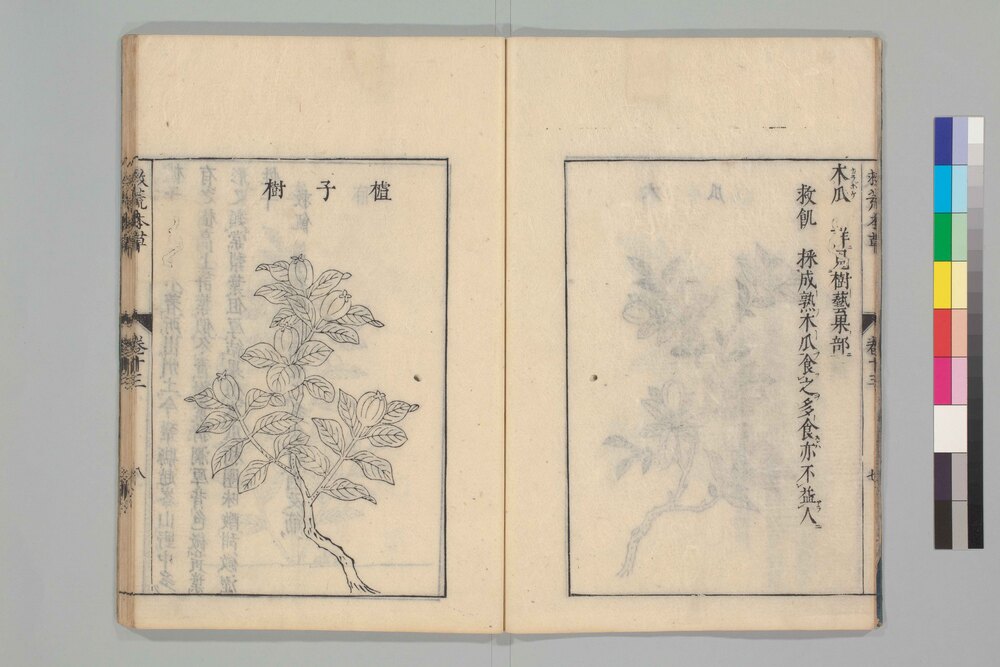 木瓜 詳見樹藝果部
救飢 採成熟木瓜食之多食亦不益人
樝子樹
救荒本草
卷十三
八
救荒本草
卷十三
七